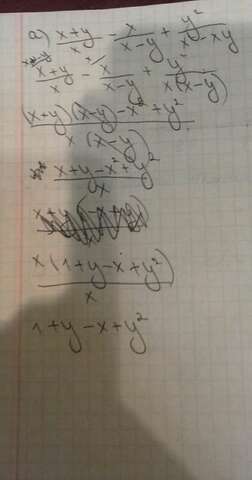 a) (x+y)/x - x/(x-y) + y²/(x²-xy)
(x+y)/x - x/(x-y) + y²/(x(x-y))
((x+y)(x-y)-x²+y²)/(x(x-y))
(x+y-x²+y²)/x
x(1+y-x+y²)/x
1+y-x+y²